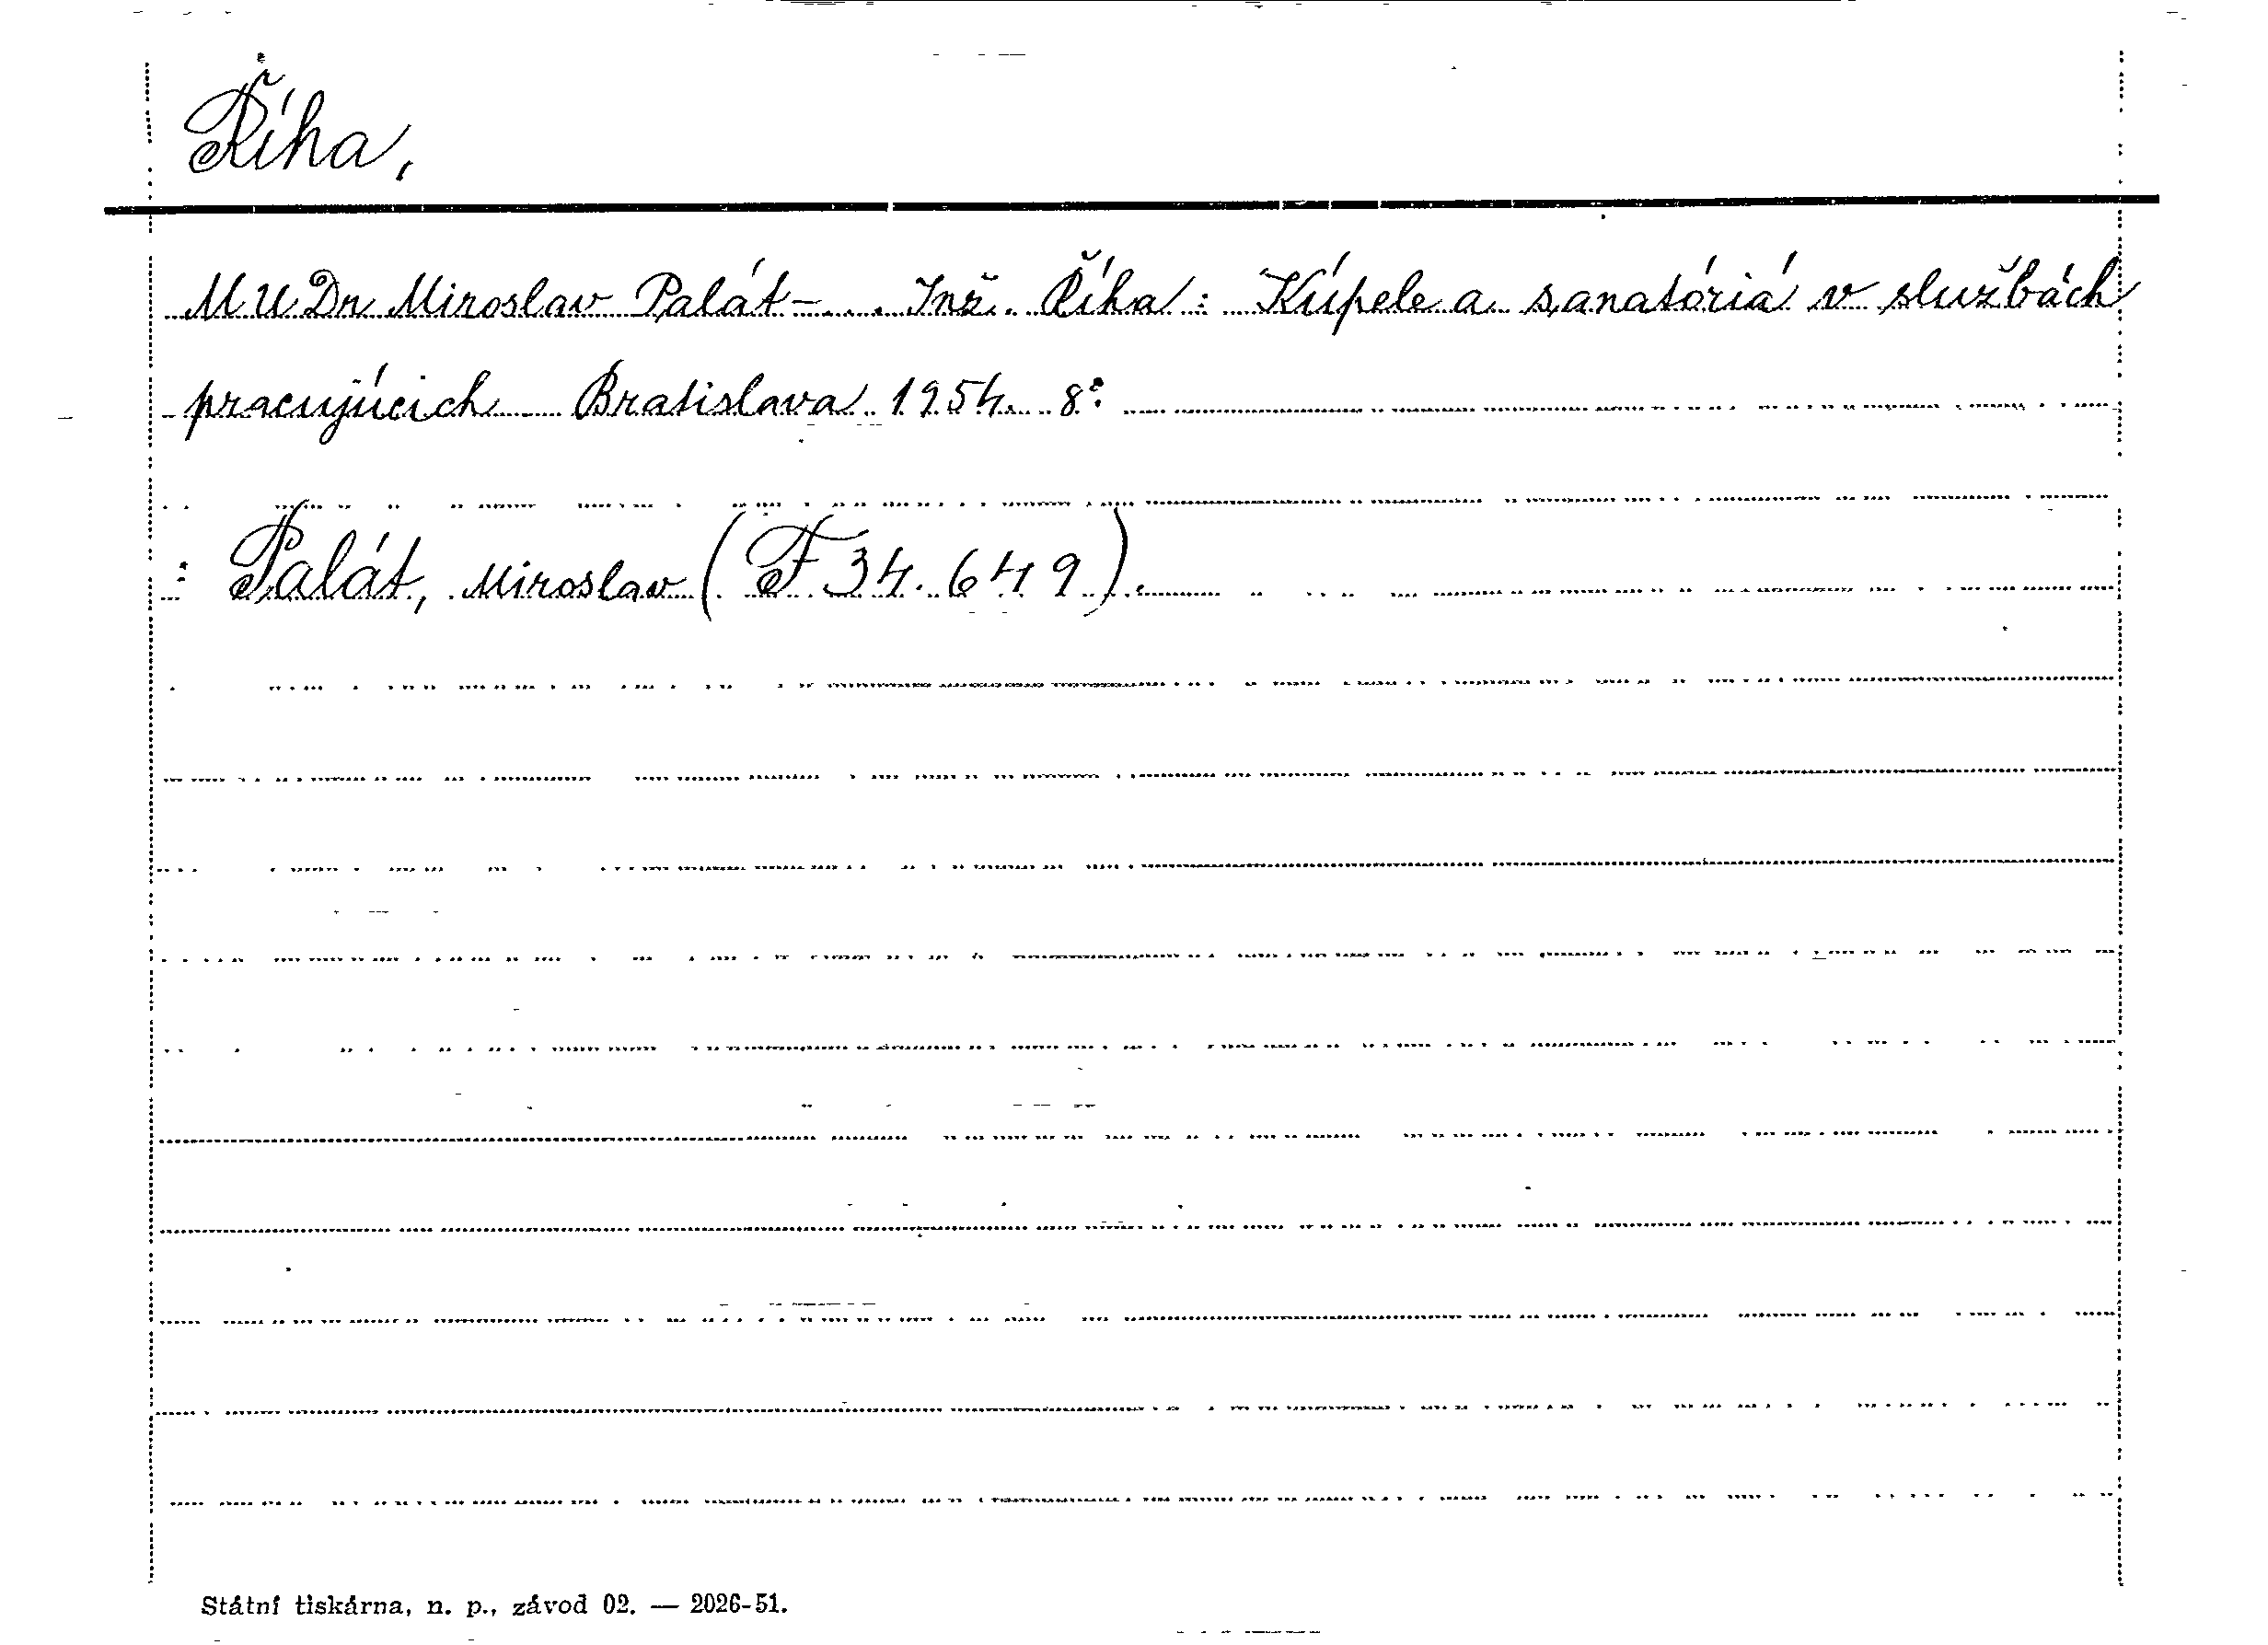 Říha,
MUDr Miroslav Palát - ... Inž. Říha: Kúpele a sanatória v službách
pracujúcich Bratislava 1954. 8°.
: Palát, Miroslav (F 34.649).
Státní tiskárna, n. p., závod 02. — 2026-51.